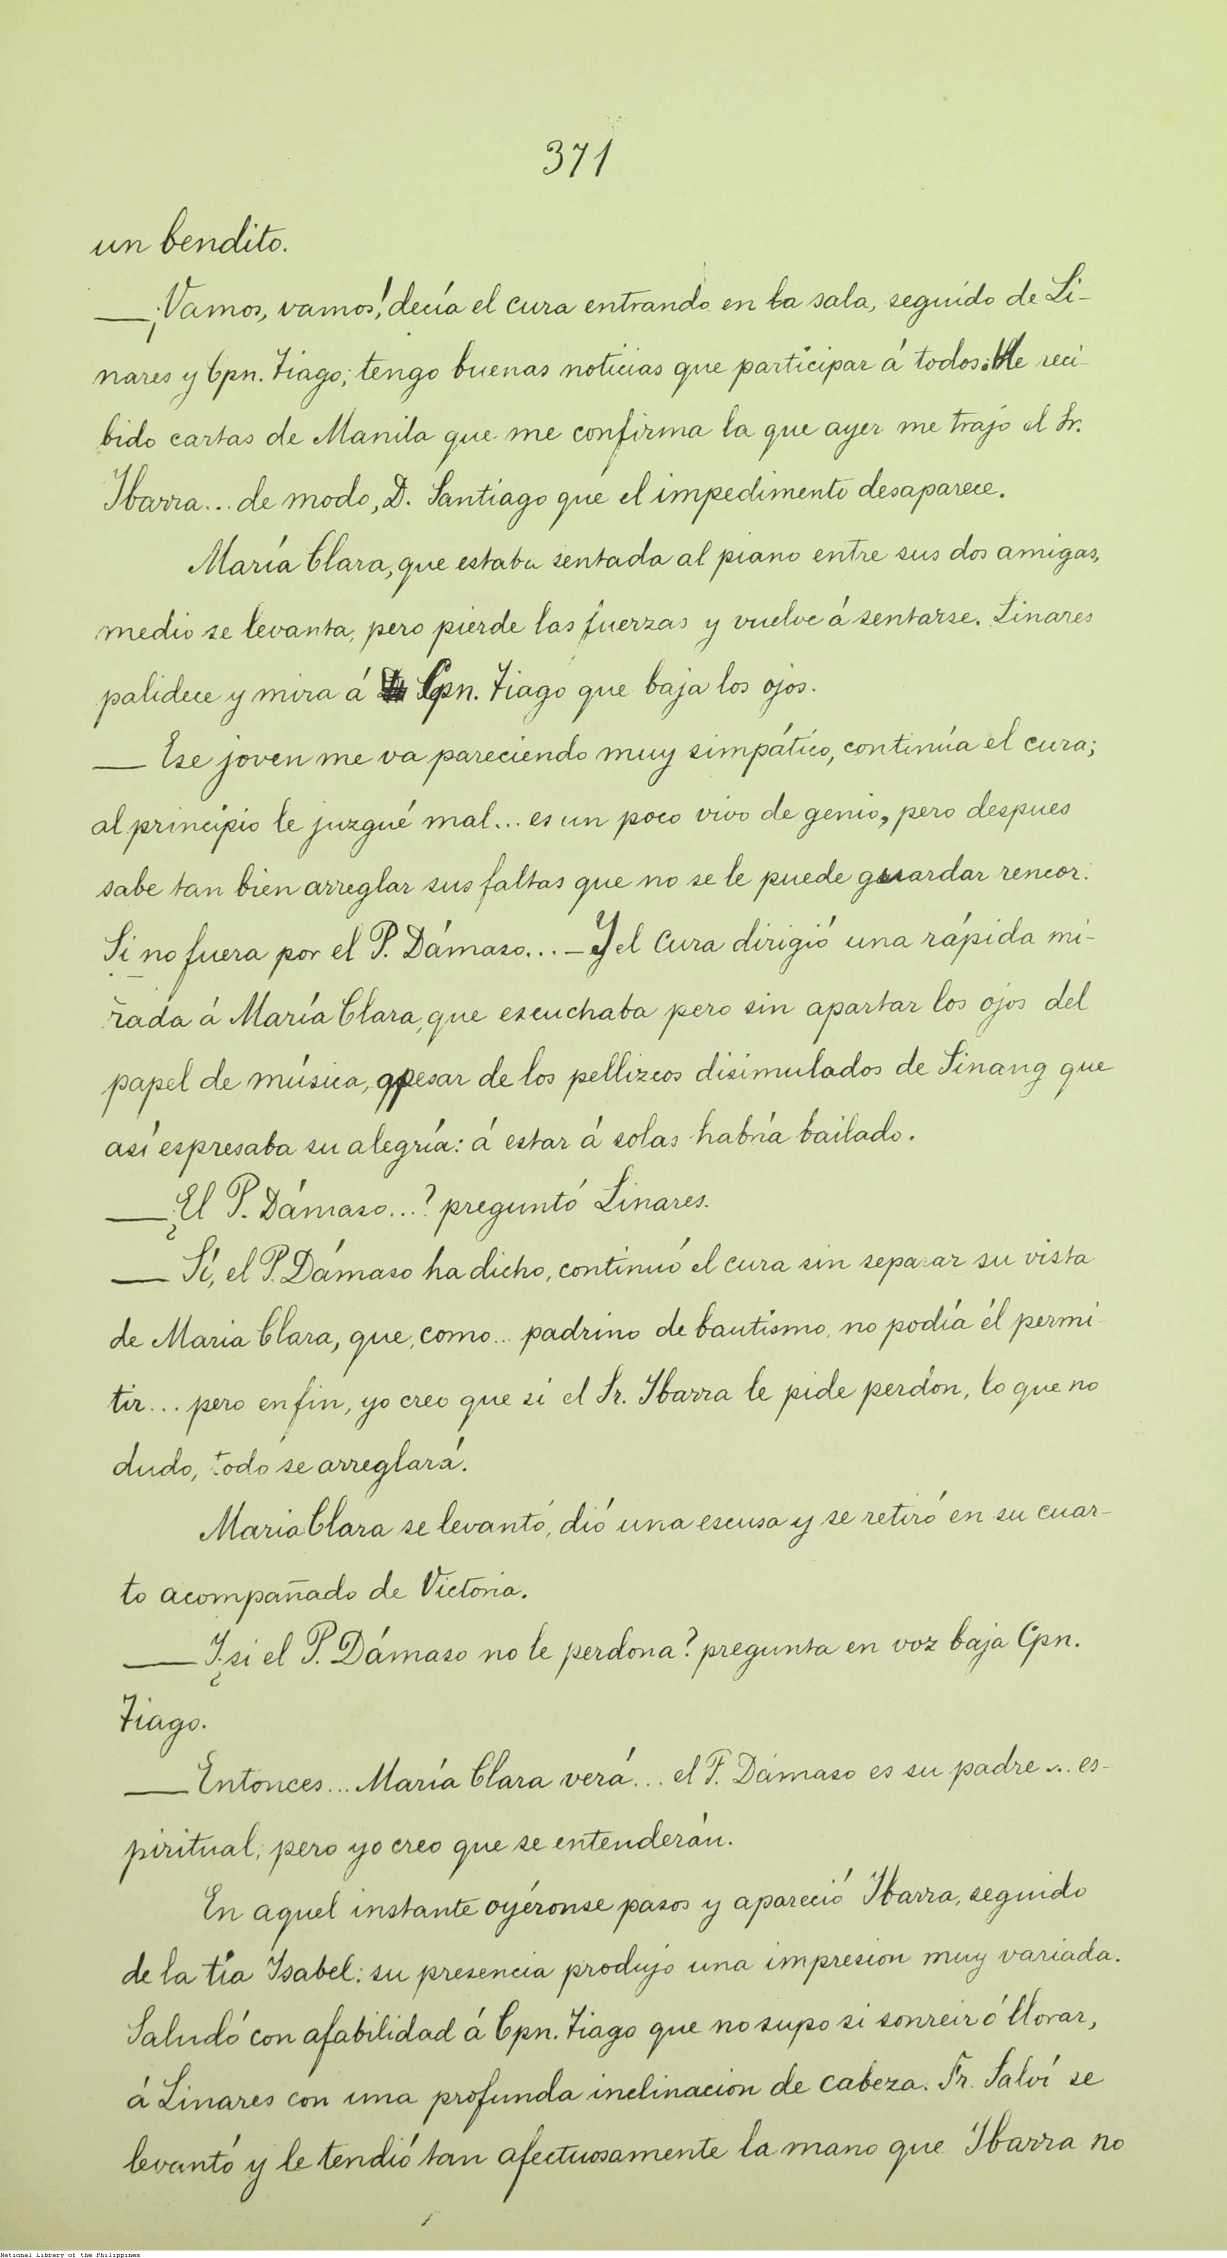 371
un bendito.
—¡Vamos, vamos! decía el cura entrando en la sala, seguido de Li-
nares y Cpn. Tiago; tengo buenas noticias que participar á todos: He reci-
bido cartas de Manila que me confirma la que ayer me trajo el Sr.
Ibarra... de modo, D. Santiago que el impedimento desaparece.
María Clara, que estaba sentada al piano entre sus dos amigas,
medio se levanta, pero pierde las fuerzas y vuelve á sentarse. Linares
palidece y mira á Cpn. Tiago que baja los ojos.
— Ese joven me va pareciendo muy simpático, continúa el cura;
al principio le juzgué mal... es un poco vivo de genio, pero despues
sabe tan bien arreglar sus faltas que no se le puede guardar rencor.
Si no fuera por el P. Dámaso... — Y el Cura dirigió una rápida mi-
rada á María Clara, que escuchaba pero sin apartar los ojos del
papel de música, apesar de los pellizcos disimulados de Sinang que
así espresaba su alegría: á estar á solas habría bailado.
—¿El P. Dámaso...? preguntó Linares.
— Sí, el P. Dámaso ha dicho, continuó el cura sin separar su vista
de Maria Clara, que, como... padrino de bautismo, no podía él permi
tir... pero en fin, yo creo que si el Sr. Ibarra le pide perdón, lo que no
dudo, todo se arreglará.
Maria Clara se levantó, dió una escusa y se retiró en su cuar-
to acompañado de Victoria.
— Y ¿si el P. Dámaso no le perdona? pregunta en voz baja Cpn.
Tiago.
— Entonces... María Clara verá... el P. Dámaso es su padre ... es-
piritual; pero yo creo que se entenderán.
En aquel instante oyéronse pasos y apareció Ibarra, seguido
de la tía Isabel: su presencia produjo una impresion muy variada.
Saludó con afabilidad á Cpn. Tiago que no supo si sonreir ó llorar,
á Linares con una profunda inclinacion de cabeza. Fr. Salví se
levantó y le tendió tan afectuosamente la mano que Ibarra no
National Library of the Philippines